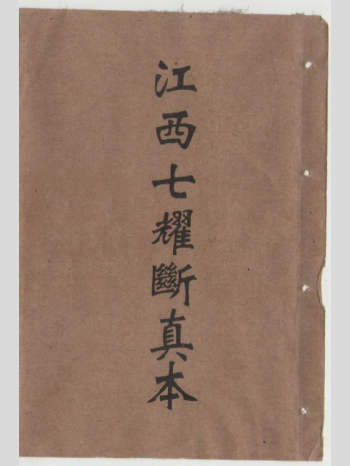 江西七耀斷真本